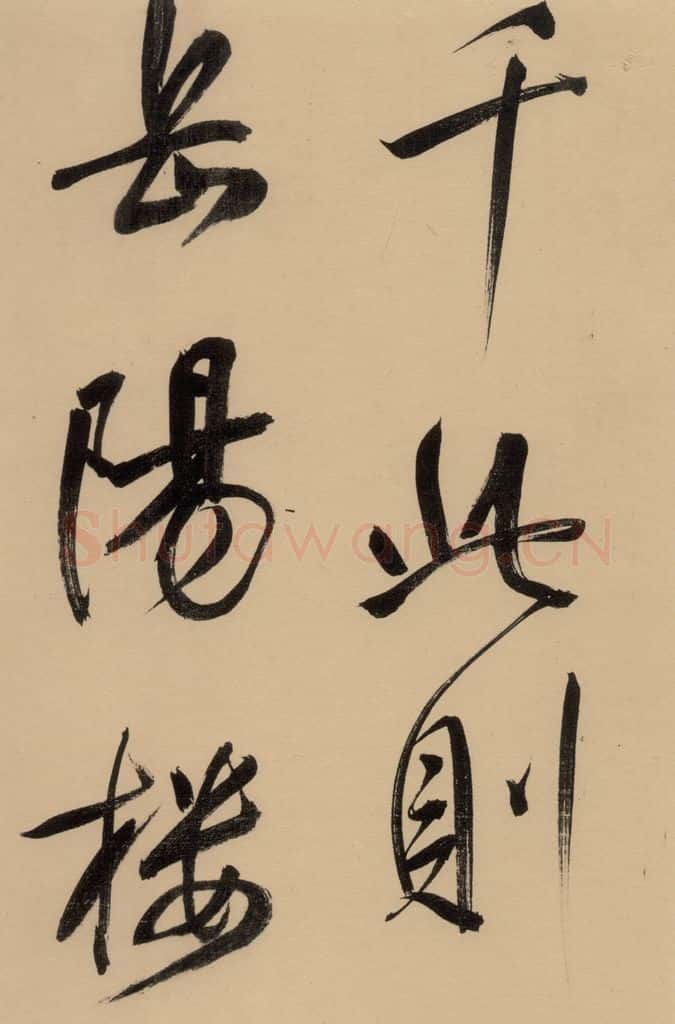 千此則
岳陽楼
Shufawang.CN